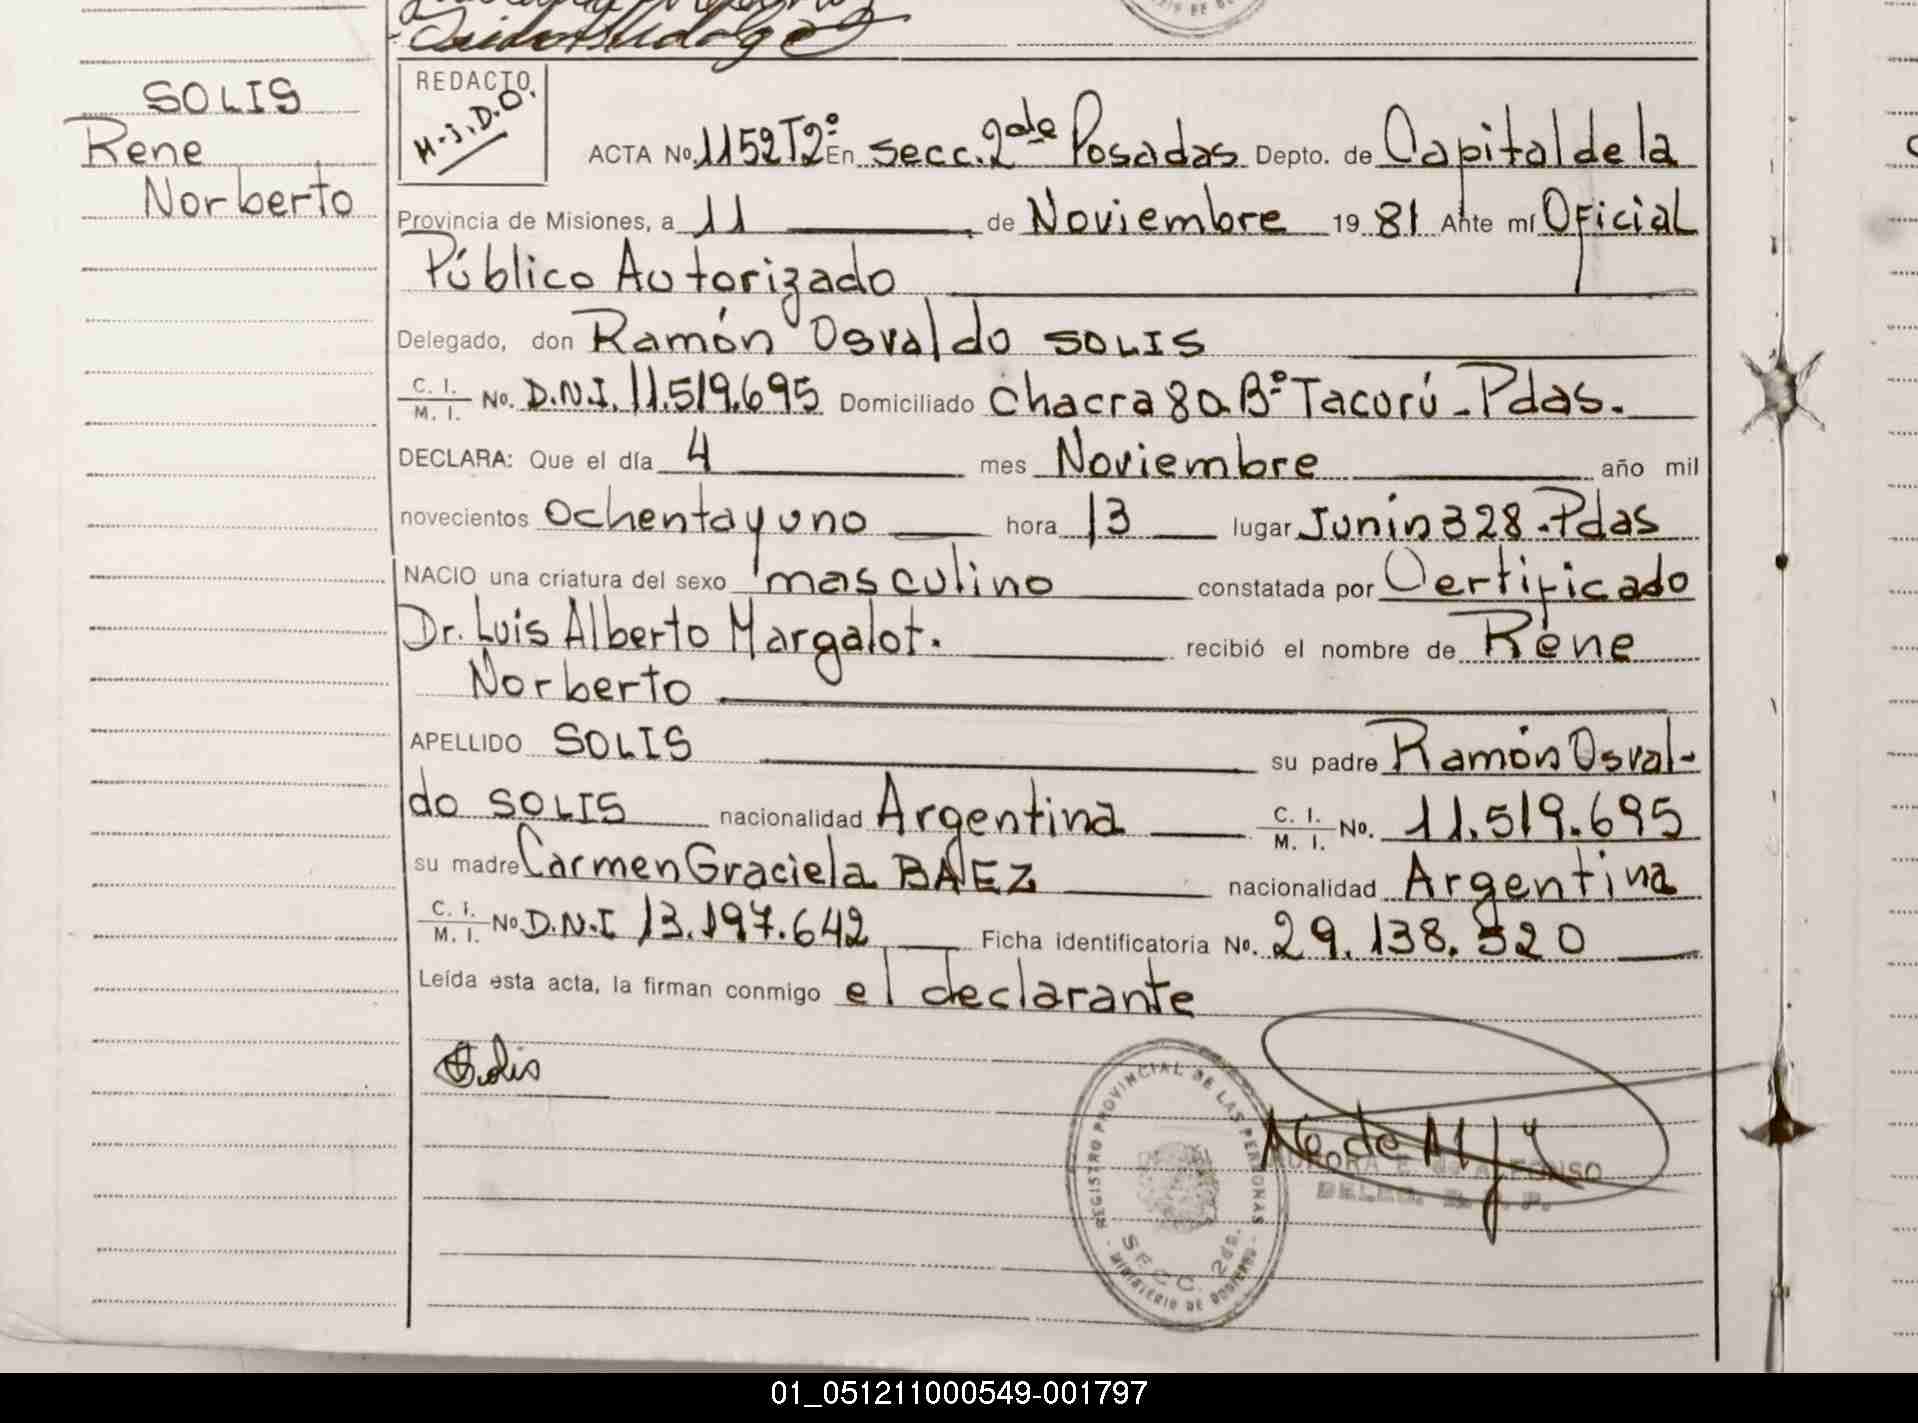 SOLIS
Rene
Norberto
REDACTO
M.J.D.O.
ACTA No. 1152T2º En secc. 2da Posadas Depto. de Capital de la
Provincia de Misiones, a 11 de Noviembre 1981 Ante mí Oficial
Público Autorizado
Delegado, don Ramón Osvaldo SOLIS
C. I. / M. I. No. D.N.I. 11.519.695 Domiciliado Chacra 80 Bº Tacurú - Pdas.
DECLARA: Que el día 4 mes Noviembre año mil
novecientos ochenta y uno hora 13 lugar Junin 328 - Pdas
NACIO una criatura del sexo masculino constatada por Certificado
Dr. Luis Alberto Margalot. recibió el nombre de Rene
Norberto
APELLIDO SOLIS su padre Ramón Osval-
do SOLIS nacionalidad Argentina C. I. / M. I. No. 11.519.695
su madre Carmen Graciela BAEZ nacionalidad Argentina
C. I. / M. I. No. D.N.I 13.197.642 Ficha identificatoria No. 29.138.520
Leída esta acta, la firman conmigo el declarante
Solis
REGISTRO PROVINCIAL DE LAS PERSONAS
SECC. 2da.
- MINISTERIO DE GOBIERNO -
AURORA E. de ALFONSO
01_051211000549-001797